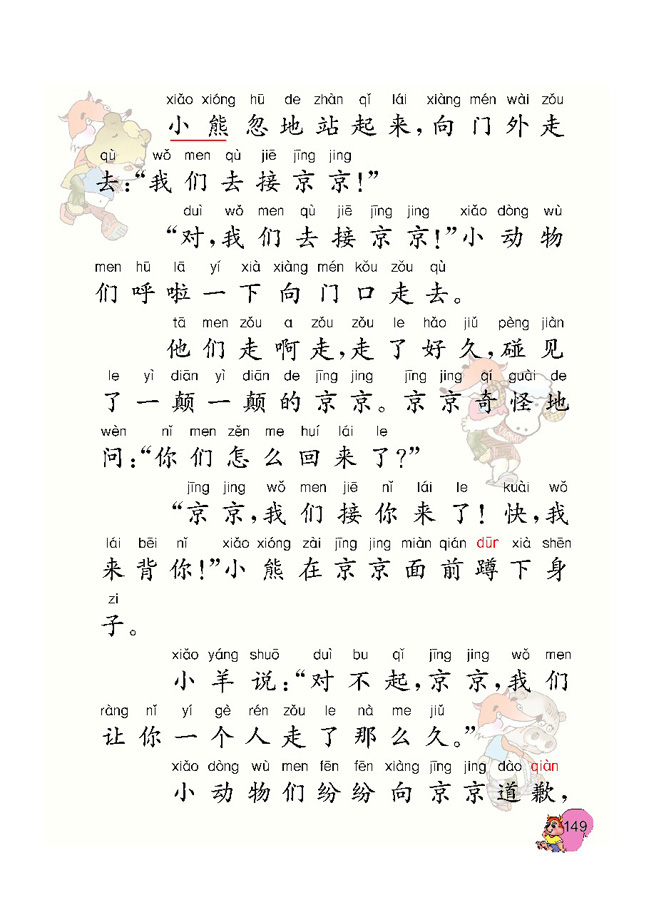 xiǎo xióng hū de zhàn qǐ lái xiàng mén wài zǒu
小熊忽地站起来，向门外走
qù wǒ men qù jiē jīng jing
去：“我们去接京京！”
duì wǒ men qù jiē jīng jing xiǎo dòng wù
“对，我们去接京京！”小动物
men hū lā yí xià xiàng mén kǒu zǒu qù
们呼啦一下向门口走去。
tā men zǒu a zǒu zǒu le hǎo jiǔ pèng jiàn
他们走啊走，走了好久，碰见
le yì diān yì diān de jīng jing jīng jing qí guài de
了一颠一颠的京京。京京奇怪地
wèn nǐ men zěn me huí lái le
问：“你们怎么回来了？”
jīng jing wǒ men jiē nǐ lái le kuài wǒ
“京京，我们接你来了！快，我
lái bēi nǐ xiǎo xióng zài jīng jing miàn qián dūr xià shēn
来背你！”小熊在京京面前蹲下身
zi
子。
xiǎo yáng shuō duì bu qǐ jīng jing wǒ men
小羊说：“对不起，京京，我们
ràng nǐ yí gè rén zǒu le nà me jiǔ
让你一个人走了那么久。”
xiǎo dòng wù men fēn fēn xiàng jīng jing dào qiàn
小动物们纷纷向京京道歉，
149